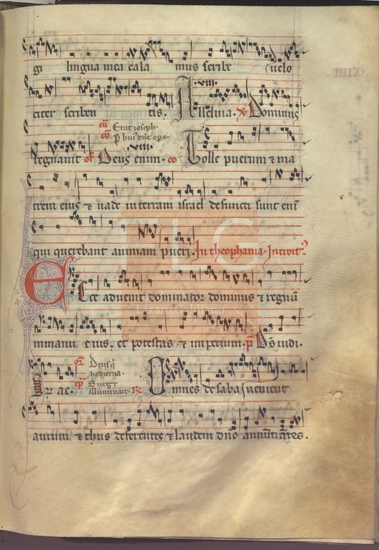 gi lingua mea cala mus scribe uelo
citer scriben tis. Alleluia. Dominus
regnauit Deus enim. co Tolle puerum & ma
trem eius & uade in terram israel defuncti sunt eni
qui querebant animam pueri. In theophania. Introit
Ecce aduenit dominator dominus & regnu
in manu eius. et potestas & imperium. p Ds iudi
Omnes de saba uenient
aurum & thus deferentes & laudem dno annuntiantes.